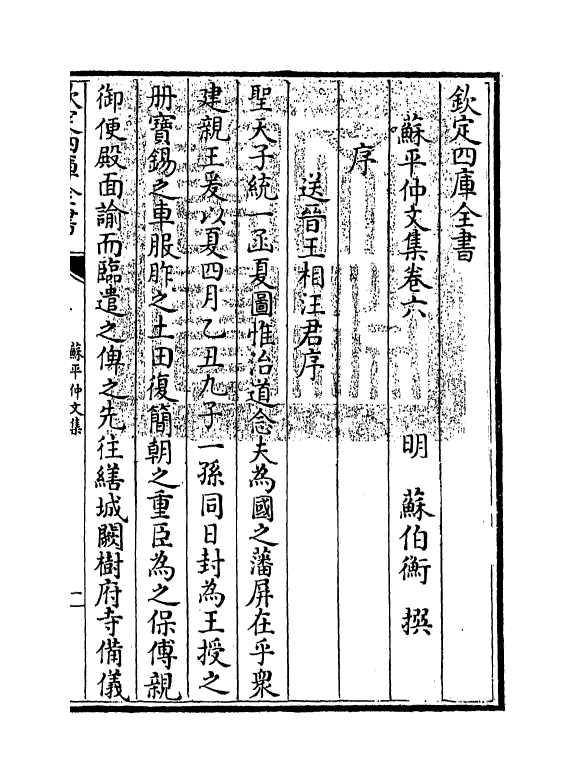 欽定四庫全書
蘇平仲文集卷六　　　明　蘇伯衡　撰
序
送晉王相汪君序
聖天子統一函夏圖惟治道念夫為國之藩屏在乎衆
建親王爰以夏四月乙丑九子一孫同日封為王授之
册寶錫之車服胙之土田復簡朝之重臣為之保傅親
御便殿面諭而臨遣之俾之先往繕城闕樹府寺備儀
欽定四庫全書
蘇平仲文集